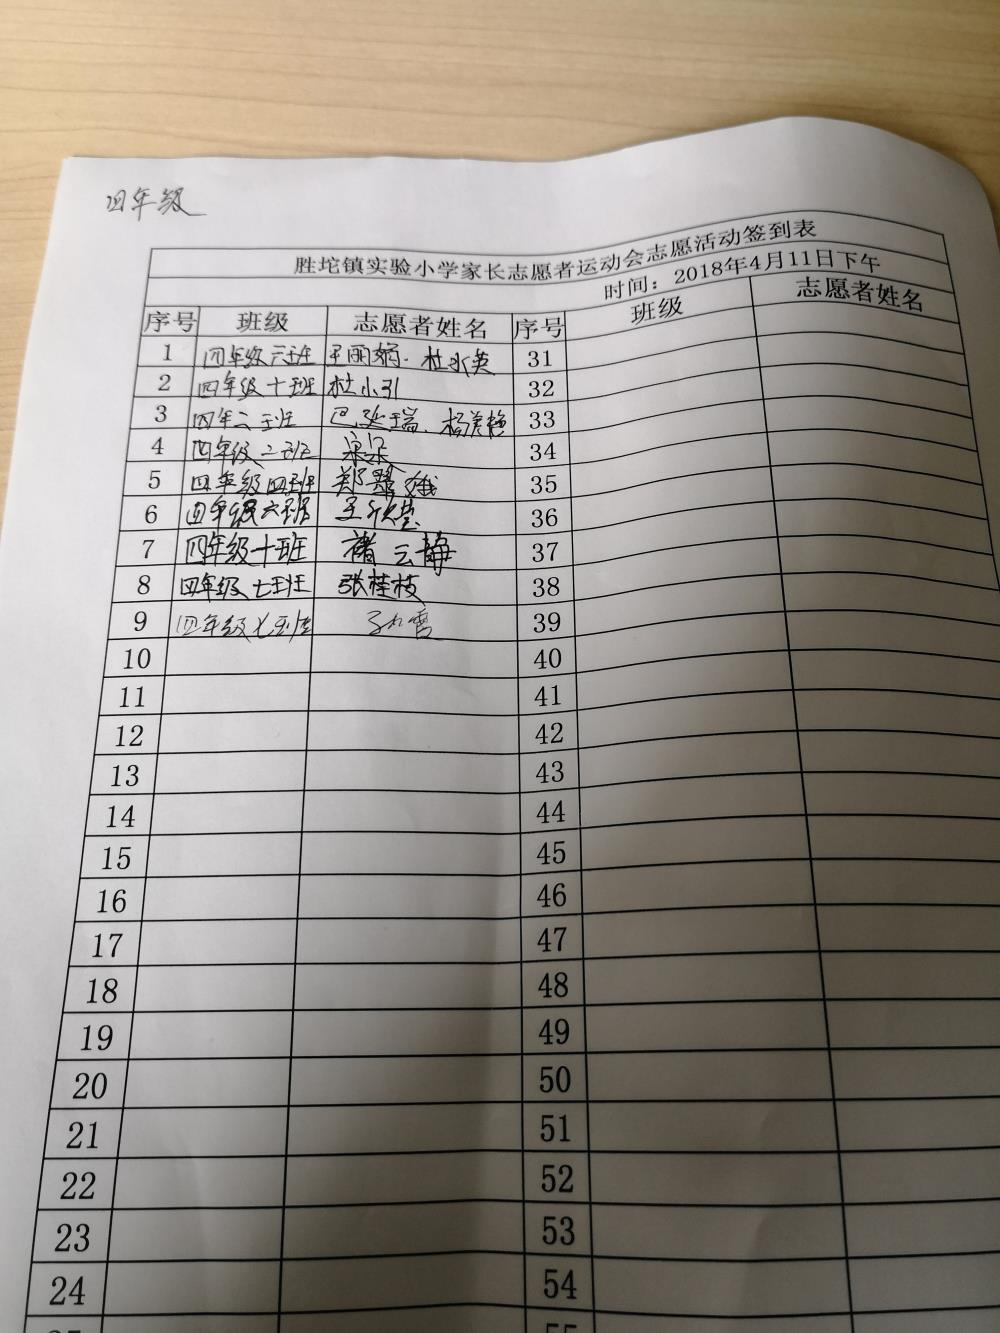 四年级
胜坨镇实验小学家长志愿者运动会志愿活动签到表
时间：2018年4月11日下午
序号 班级 志愿者姓名 序号 班级 志愿者姓名
1 四年级六班 王丽娟. 杜永英 31
2 四年级十班 杜小引 32
3 四年二班 巴延瑞、杨美艳 33
4 四年级二班 34
5 四年级四班 郑 35
6 四年级六班 王欣莹 36
7 四年级十班 褚云静 37
8 四年级七班 张桂枝 38
9 四年级七班 39
10 40
11 41
12 42
13 43
14 44
15 45
16 46
17 47
18 48
19 49
20 50
21 51
22 52
23 53
24 54
25 55